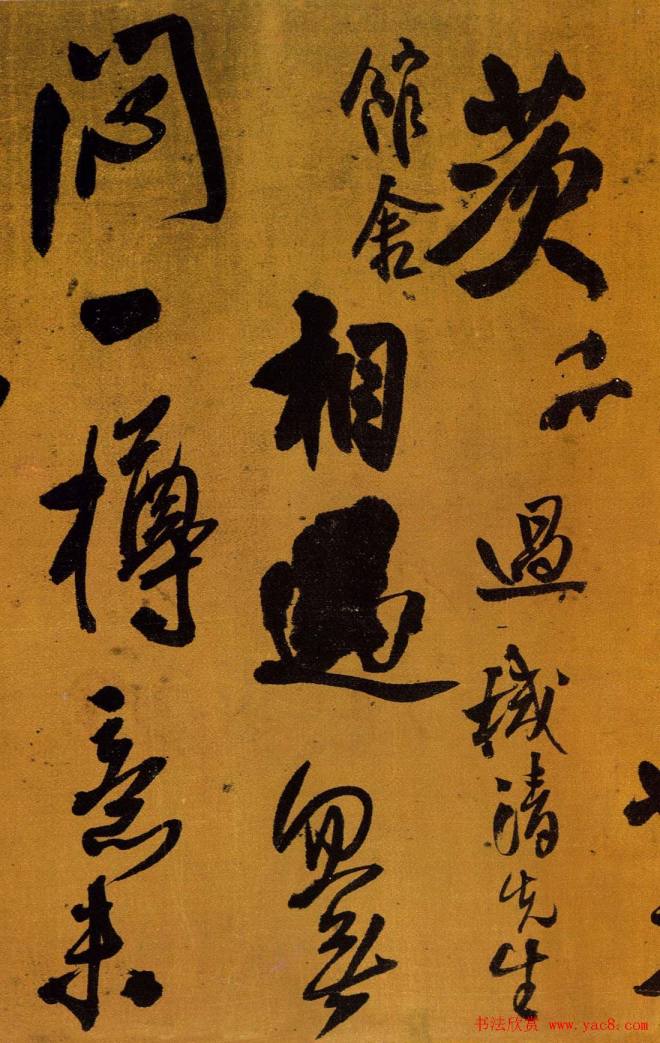 茨
過 清先生
館舍
相過
悶一樽意未
书法欣赏 www.yac8.com